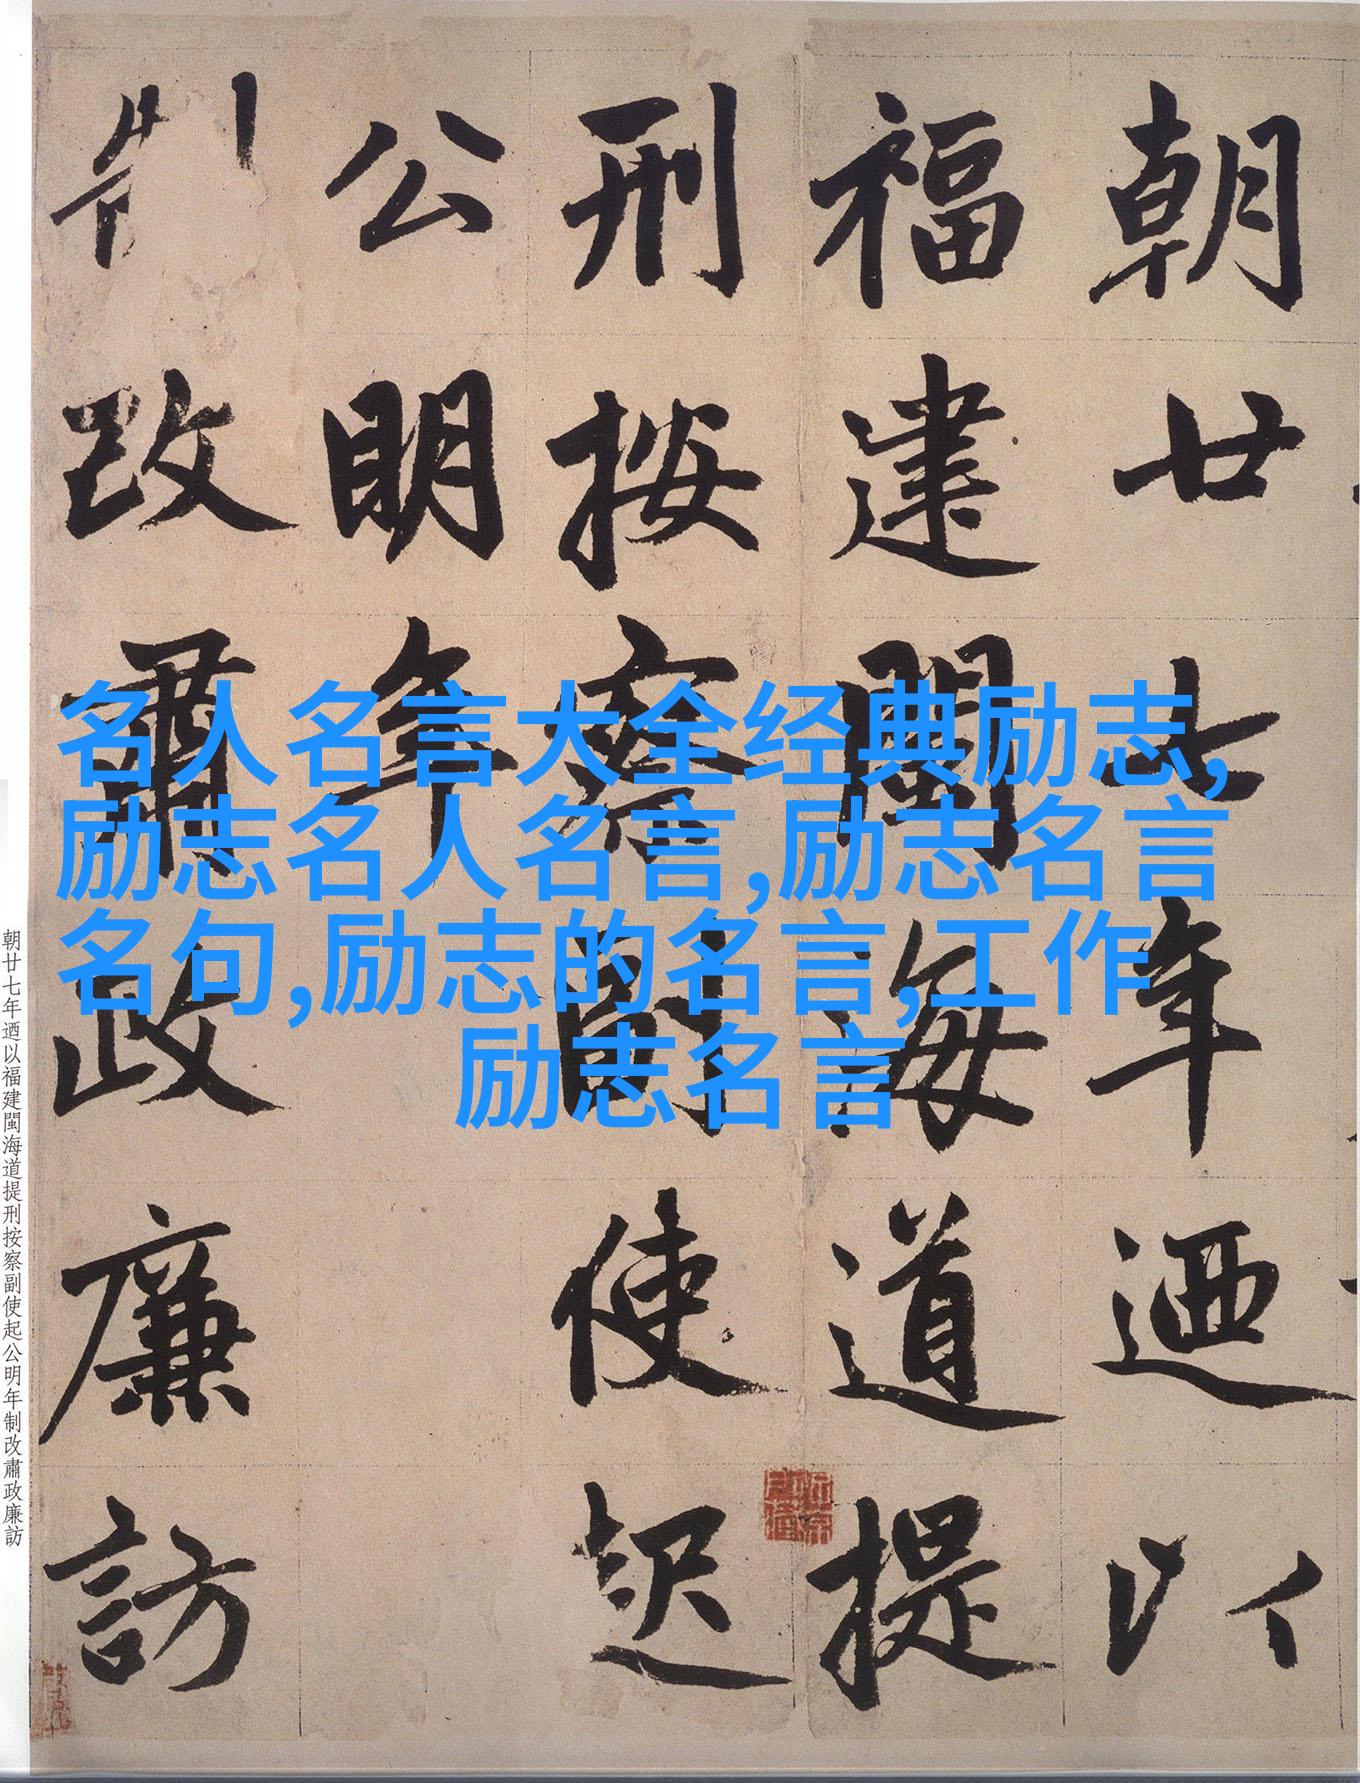 朝廿七年迺以
福建閩海道提
刑按察副使起
公明年
制改肅政廉訪
名人名言大全经典励志,
励志名人名言,励志名言
名句,励志的名言,工作
励志名言
朝廿七年迺以福建閩海道提刑按察副使起公明年制改肅政廉訪